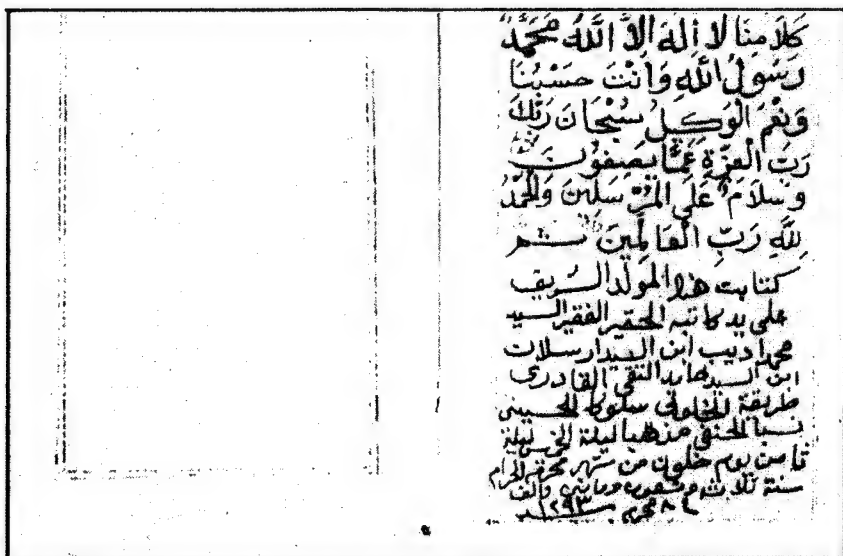 كَلَامِنَا لَا إِلَهَ إِلَّا اللَّهُ مُحَمَّدٌ
رَسُولُ اللَّهِ وَأَنْتَ حَسْبُنَا
وَنِعْمَ الْوَكِيلُ سُبْحَانَ رَبِّكَ
رَبِّ الْعِزَّةِ عَمَّا يَصِفُونَ
وَسَلَامٌ عَلَى الْمُرْسَلِينَ وَالْحَمْدُ
لِلَّهِ رَبِّ الْعَالَمِينَ
كتابت هذا المولد الشريف
على يد كاتبه الحقير الفقير السيد
محمد اديب ابن السيد ارسلان
ابن السيد حامد التقي القادري
طريقة الخلوتي سلوكا الحسيني
نسبا الحنفي مذهبا ليلة الخميس ليلة
ثامن يوم خلون من شهر محرم الحرام
سنة ثلاث وتسعين ومايتين والف
٨ محرم سنة ١٢٩٣